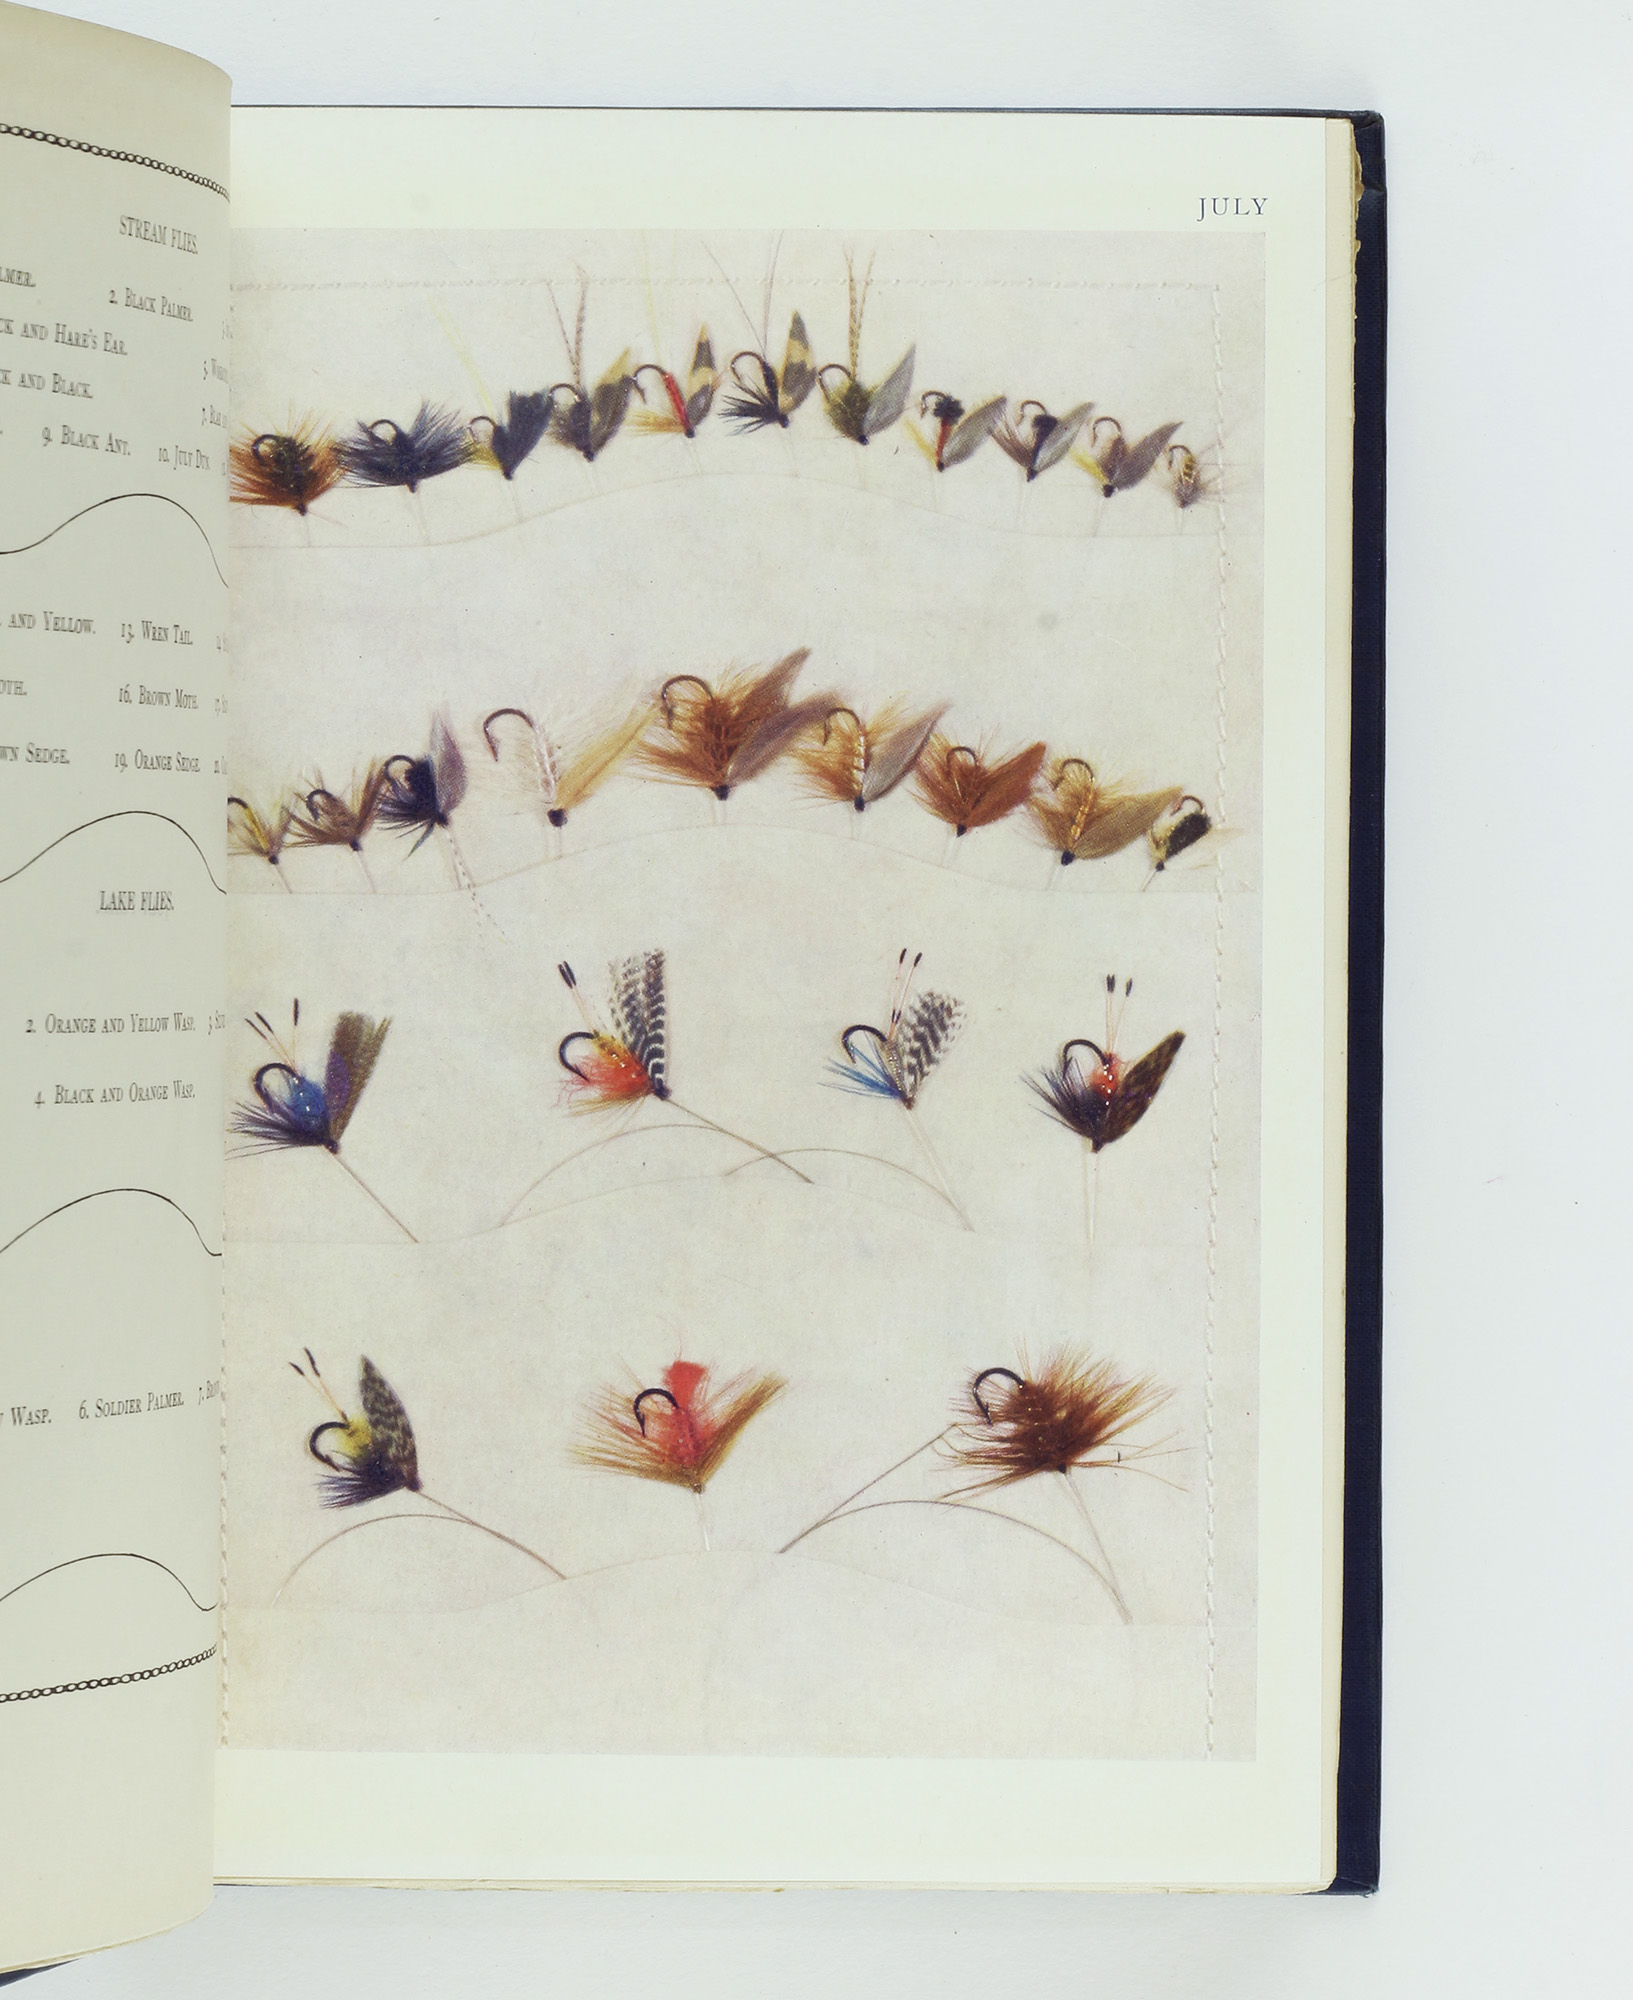 STREAM FLIES.
2. BLACK PALMER.
AND HARE'S EAR.
AND BLACK.
9. BLACK ANT. 10. JULY DUN.
AND YELLOW. 13. WREN TAIL.
16. BROWN MOTH.
SEDGE. 19. ORANGE SEDGE.
LAKE FLIES.
2. ORANGE AND YELLOW WASP. 3.
4. BLACK AND ORANGE WASP.
WASP. 6. SOLDIER PALMER. 7.
JULY